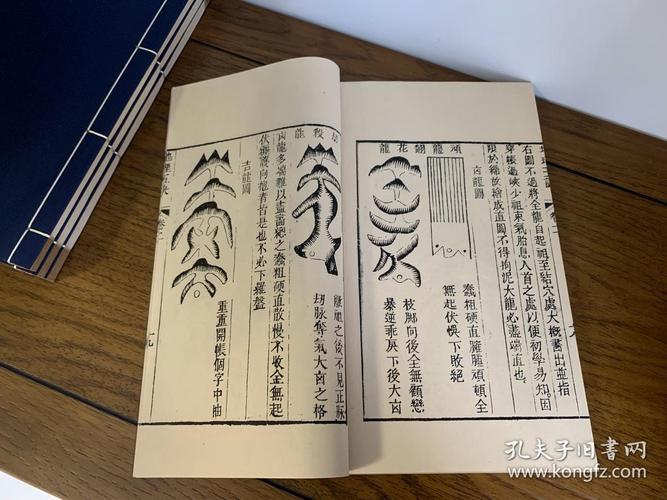 卷二
右圖不過將全龍自起祖至結穴處大概畫出並指
穿帳過峽少祖束氣胎息入首之處以便初學易知因
限於故繪成直圖不得拘泥大龍必盡端直也
凶龍圖
頑龍
蠢粗硬直臃腫頑頓全
無起伏悞下敗絕
翻花龍
枝脚向後全無顧戀
暴逆乖戾下後大凶
殺龍
之後不見正脉
刼脉奪氣大凶之格
凶龍多端難以盡論總之蠢粗硬直散慢不收全無起
伏向者皆是也不必下羅盤
吉龍圖
重重開帳個字中抽
地理五訣
卷二
孔夫子旧书网
www.kongfz.com